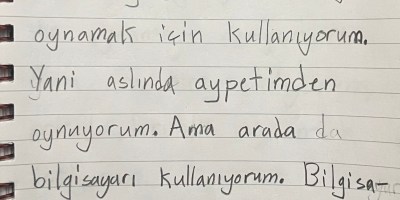 oynamak için kullanıyorum.
Yani aslında aypetimden
oynuyorum. Ama arada da
bilgisayarı kullanıyorum. Bilgisa-